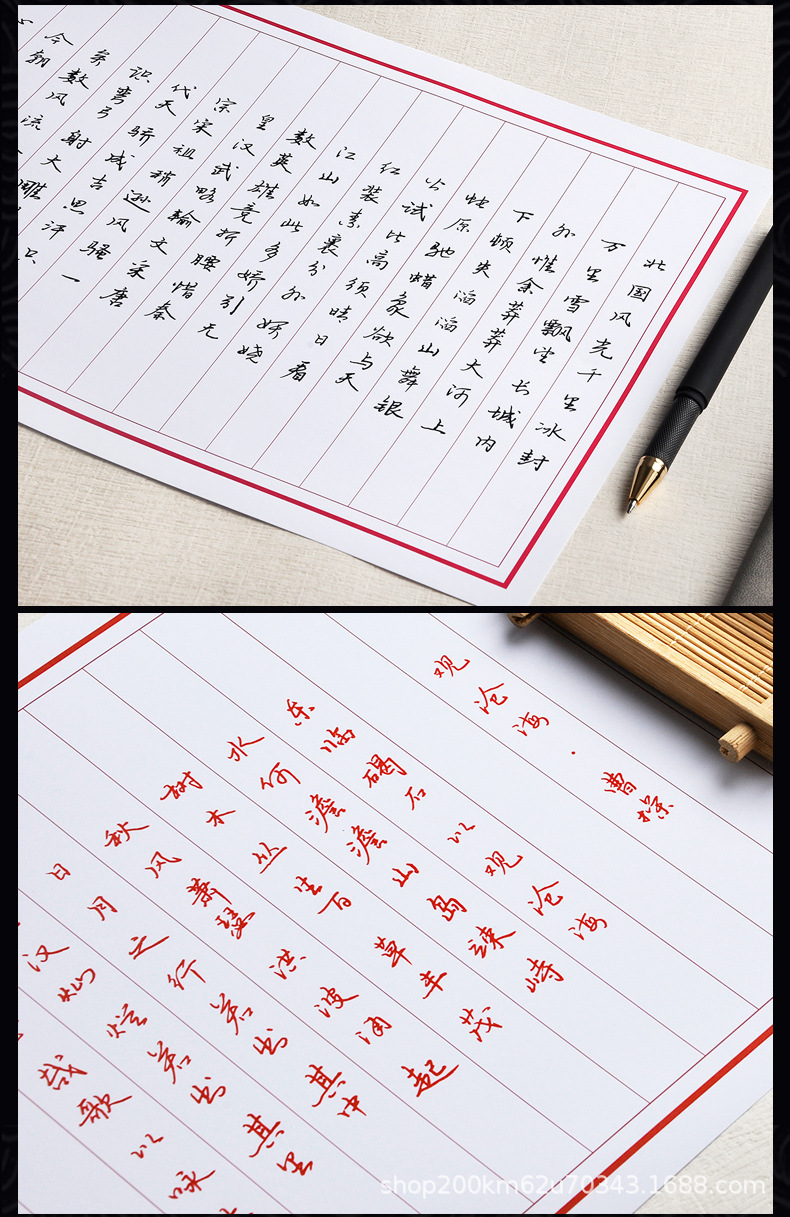 北国风光千里冰封
万里雪飘望长城内
外惟余莽莽大河上
下顿失滔滔山舞银
蛇原驰蜡象欲与天
公试比高须晴日看
红装素裹分外妖娆
江山如此多娇引无
数英雄竞折腰惜秦
皇汉武略输文采唐
宗宋祖稍逊风骚一
代天骄成吉思汗只
识弯弓射大雕
矣数风流
今朝
观沧海·曹操
东临碣石以观沧海
水何澹澹山岛竦峙
树木丛生百草丰茂
秋风萧瑟洪波涌起
日月之行若出其中
汉灿烂若出其里
哉歌以咏
shop200km62u70343.1688.com